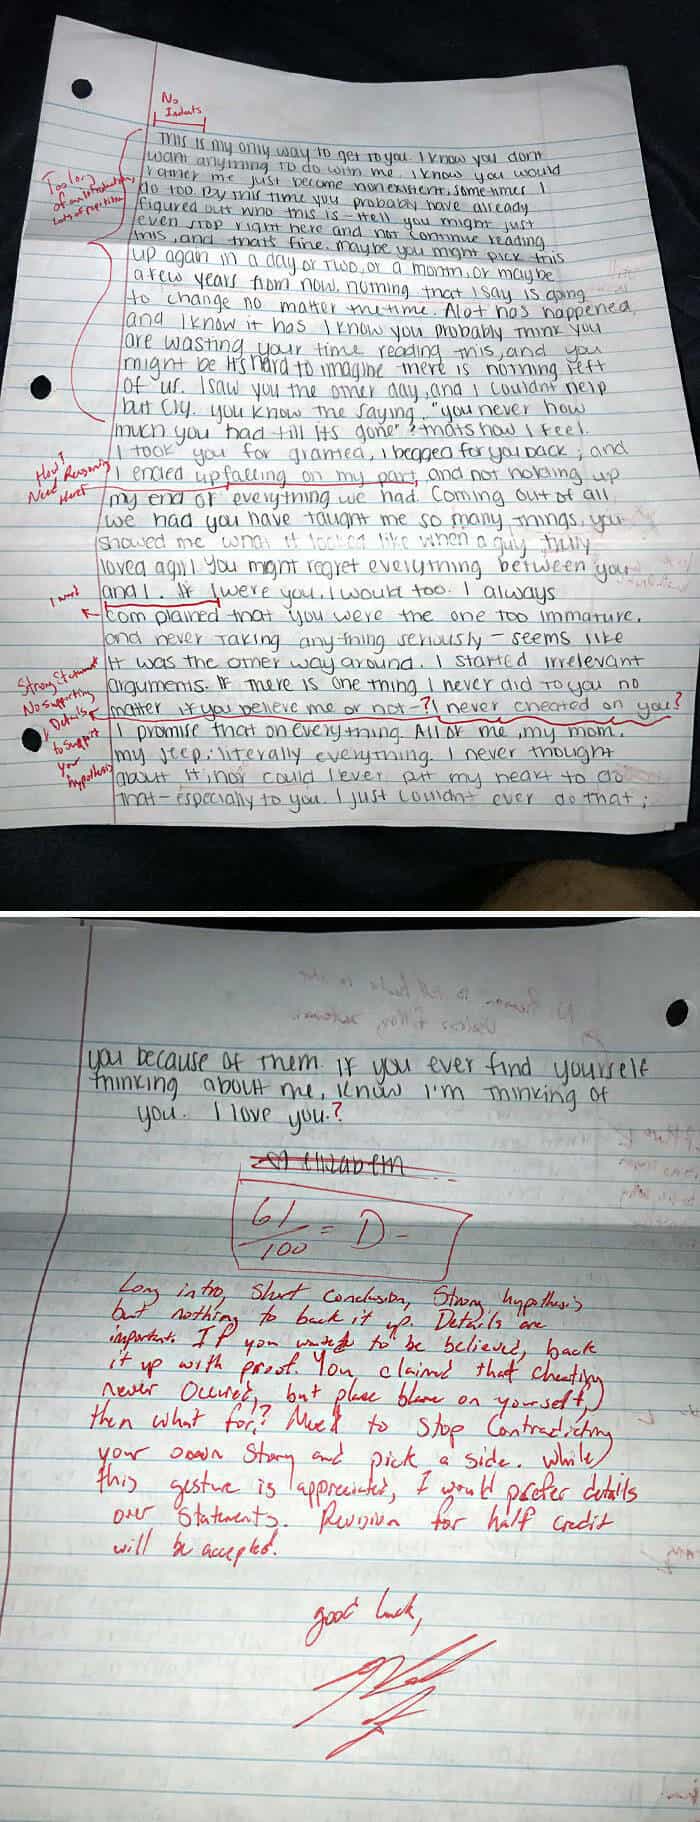 No
Indents
This is my only way to get to you. I know you don't
want anything to do with me. I know you would
rather me just become nonexistent, sometimes I
do too. By this time you probably have already
figured out who this is - Hell you might just
even stop right here and not continue reading
this, and that's fine. maybe you might pick this
up again in a day or two, or a month, or maybe
a few years from now, nothing that I say is going
to change no matter the time. Alot has happened,
and I know it has I know you probably think you
are wasting your time reading this, and you
might be its hard to imagine there is nothing left
of us. I saw you the other day, and I couldnt help
but cry. you know the saying, "you never how
much you had till its gone"? thats how I feel.
I took you for granted, I begged for you back; and
I ended up falling on my part, and not holding up
my end of everything we had. Coming out of all
we had you have taught me so many things, you
showed me what it looked like when a guy truly
loved a girl. You might regret everything between you
and I. If I were you, I would too. I always
complained that you were the one too immature,
and never taking anything seriously - seems like
it was the other way around. I started irrelevant
arguments. If there is one thing I never did to you no
matter if you believe me or not-? I never cheated on you?
I promise that on everything. All of me, my mom,
my jeep; literally everything. I never thought
about it, nor could I ever put my heart to do
that - especially to you. I just couldnt ever do that;
Too long
of an introduction,
Lots of repetition
How?
Need Reasoning
Here!
1 word
Strong Statement
No supporting
Details
to support
your
hypothesis
you because of them. If you ever find yourself
thinking about me, know I'm thinking of
you. I love you.?
Elizabeth
61/100 = D-
Long intro, Short conclusion, Strong hypothesis
but nothing to back it up. Details are
important. If you want to be believed, back
it up with proof. You claimed that cheating
never occured, but place blame on yourself,
then what for? Need to stop contradicting
your own story and pick a side. While
this gesture is appreciated, I would prefer details
over statements. Revision for half credit
will be accepted.
good luck,